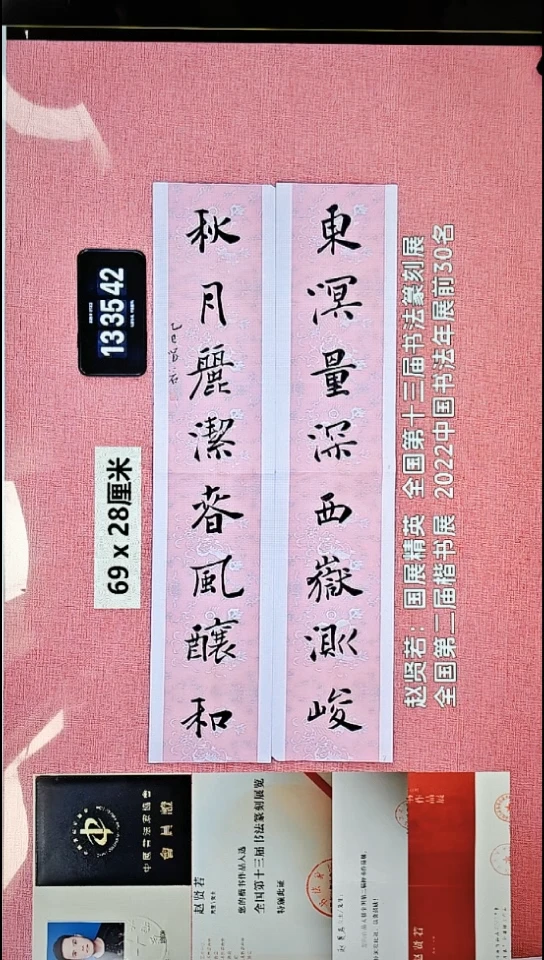 東溟量深西嶽測峻
秋月麗潔春風釀和
13:35 42
69 x 28厘米
赵贤若：国展精英 全国第十三届书法篆刻展
全国第二届楷书展 2022中国书法年展前30名
中國书法家協會
會員證
赵贤若
您的楷书作品入选
全国第十三届书法篆刻展览
特颁此证
赵贤若
作品展